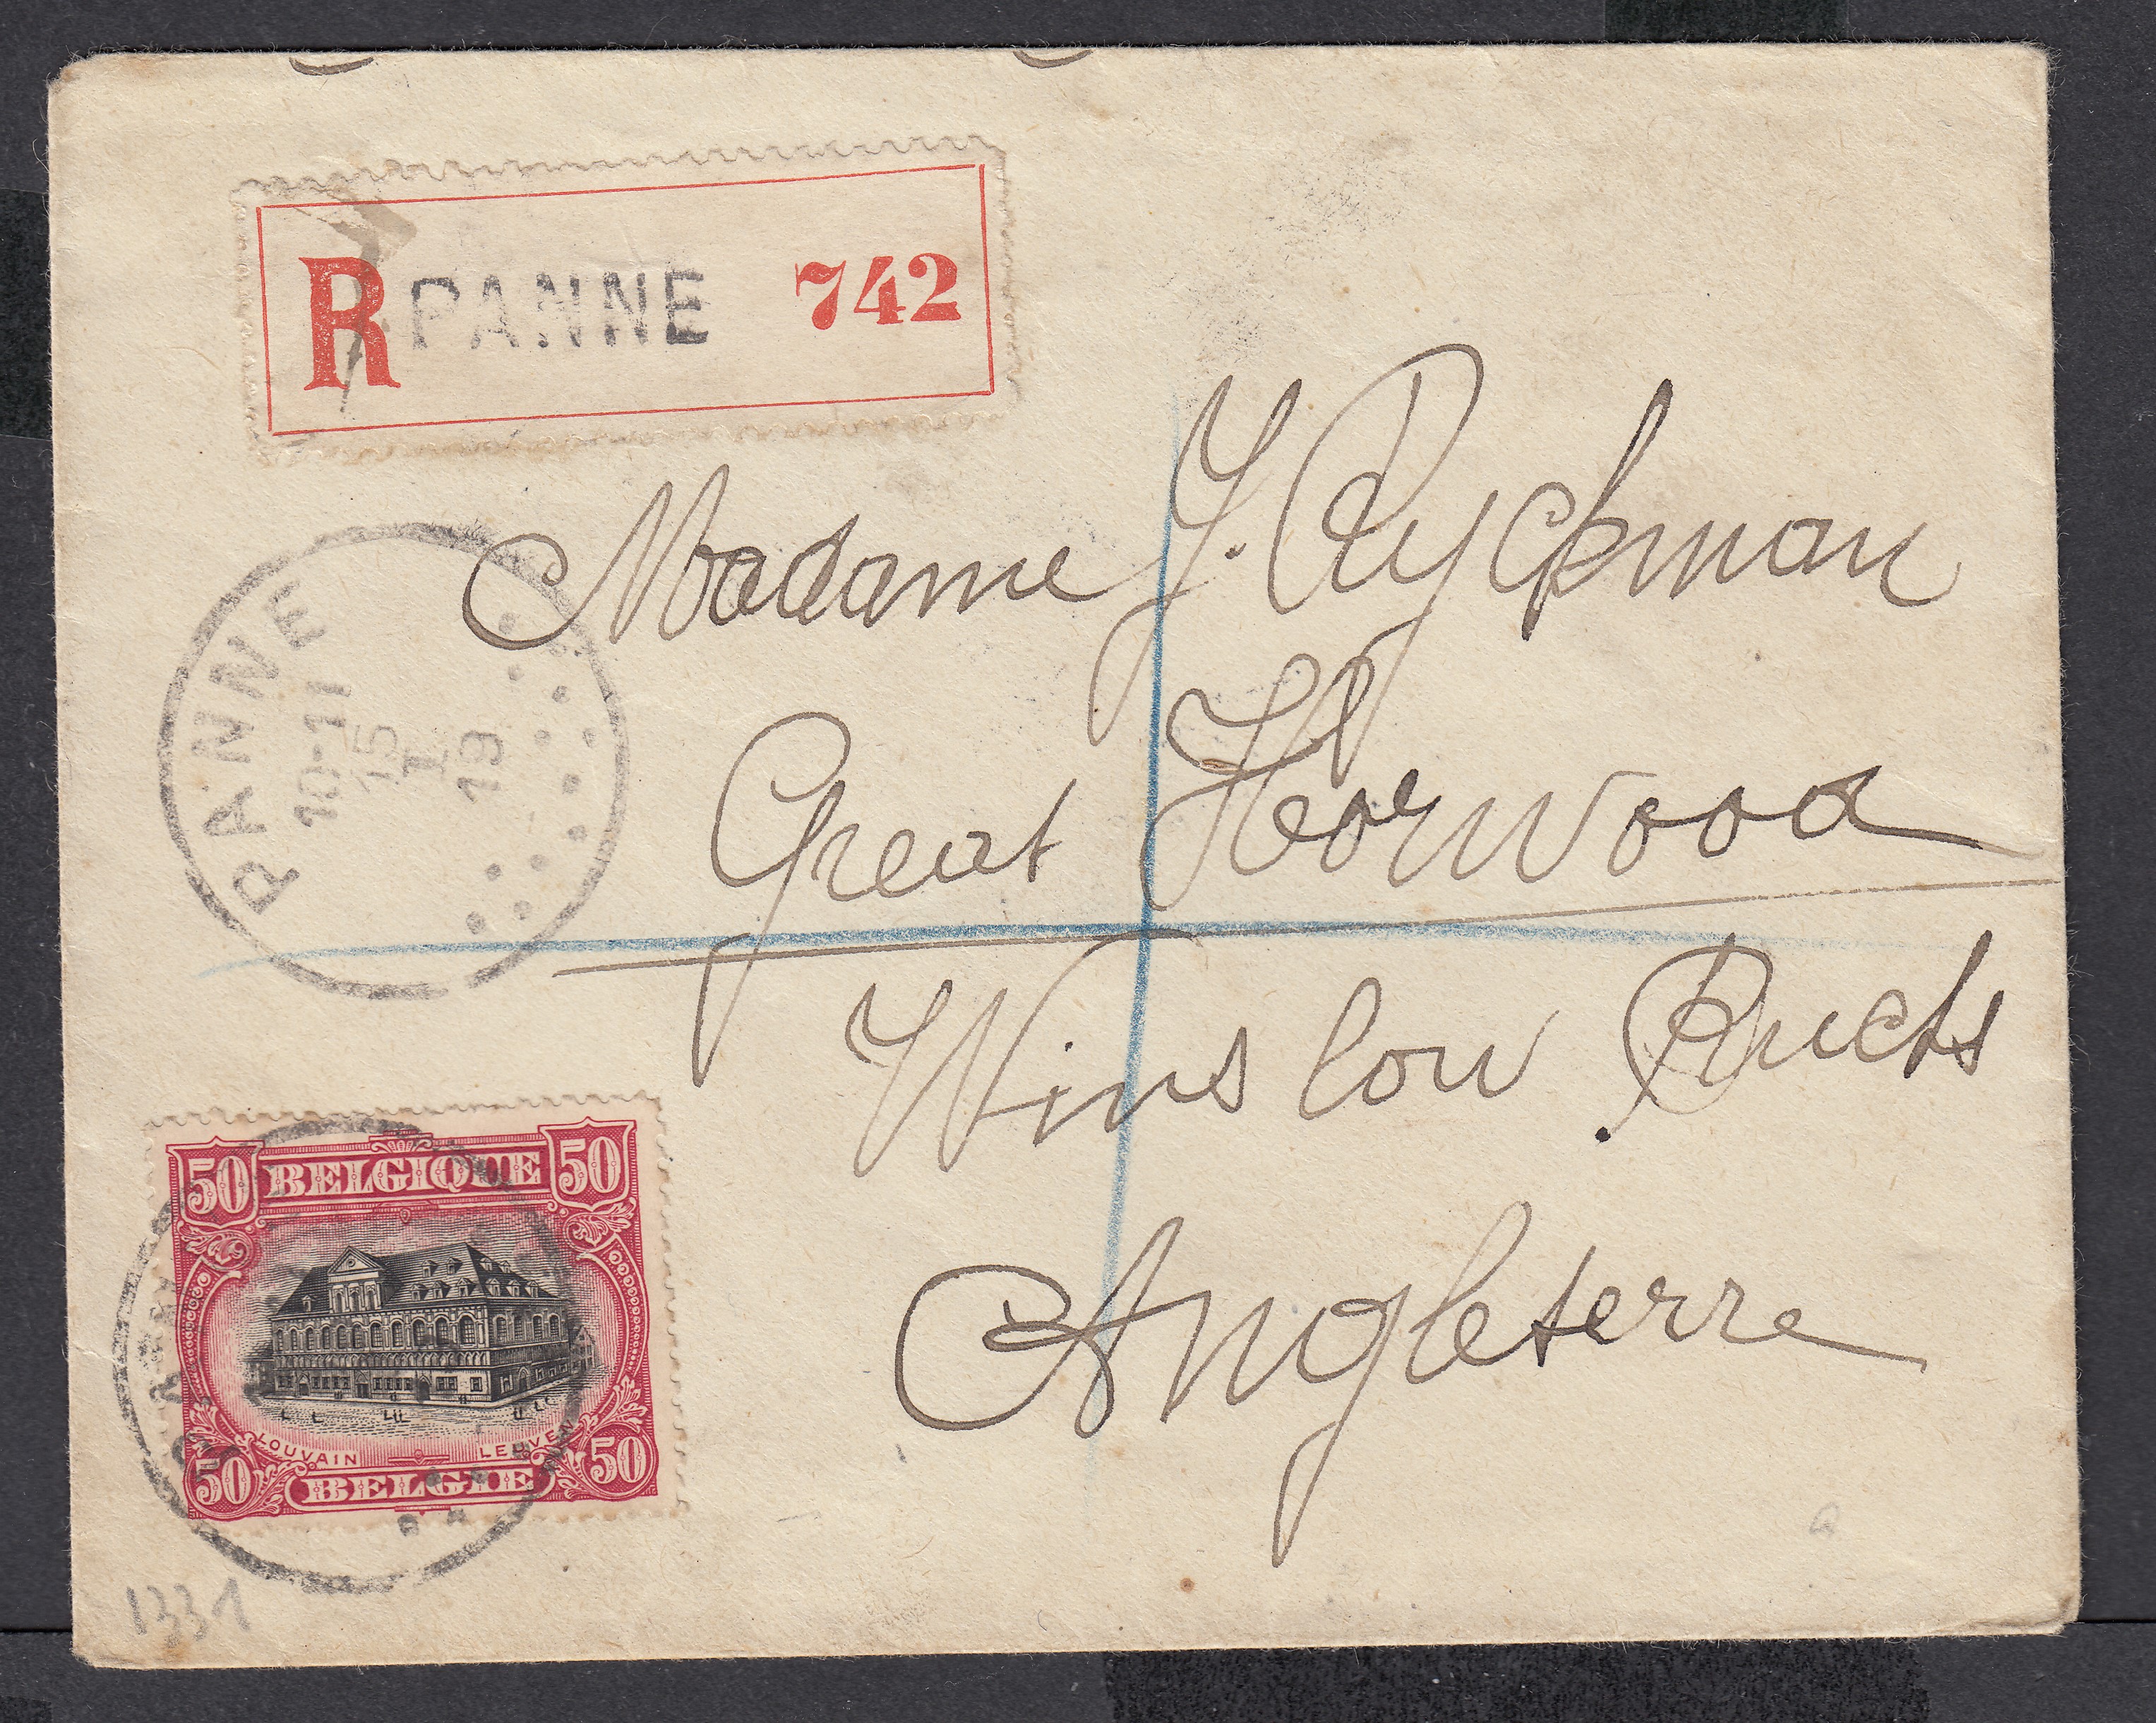 R PANNE 742
Madame J. Ryckman
Great Horwood
Winslow Bucks
Angleterre
PANNE
10-11
15
I
19
50 BELGIQUE 50
LOUVAIN LEUVEN
50 BELGIE 50
1331